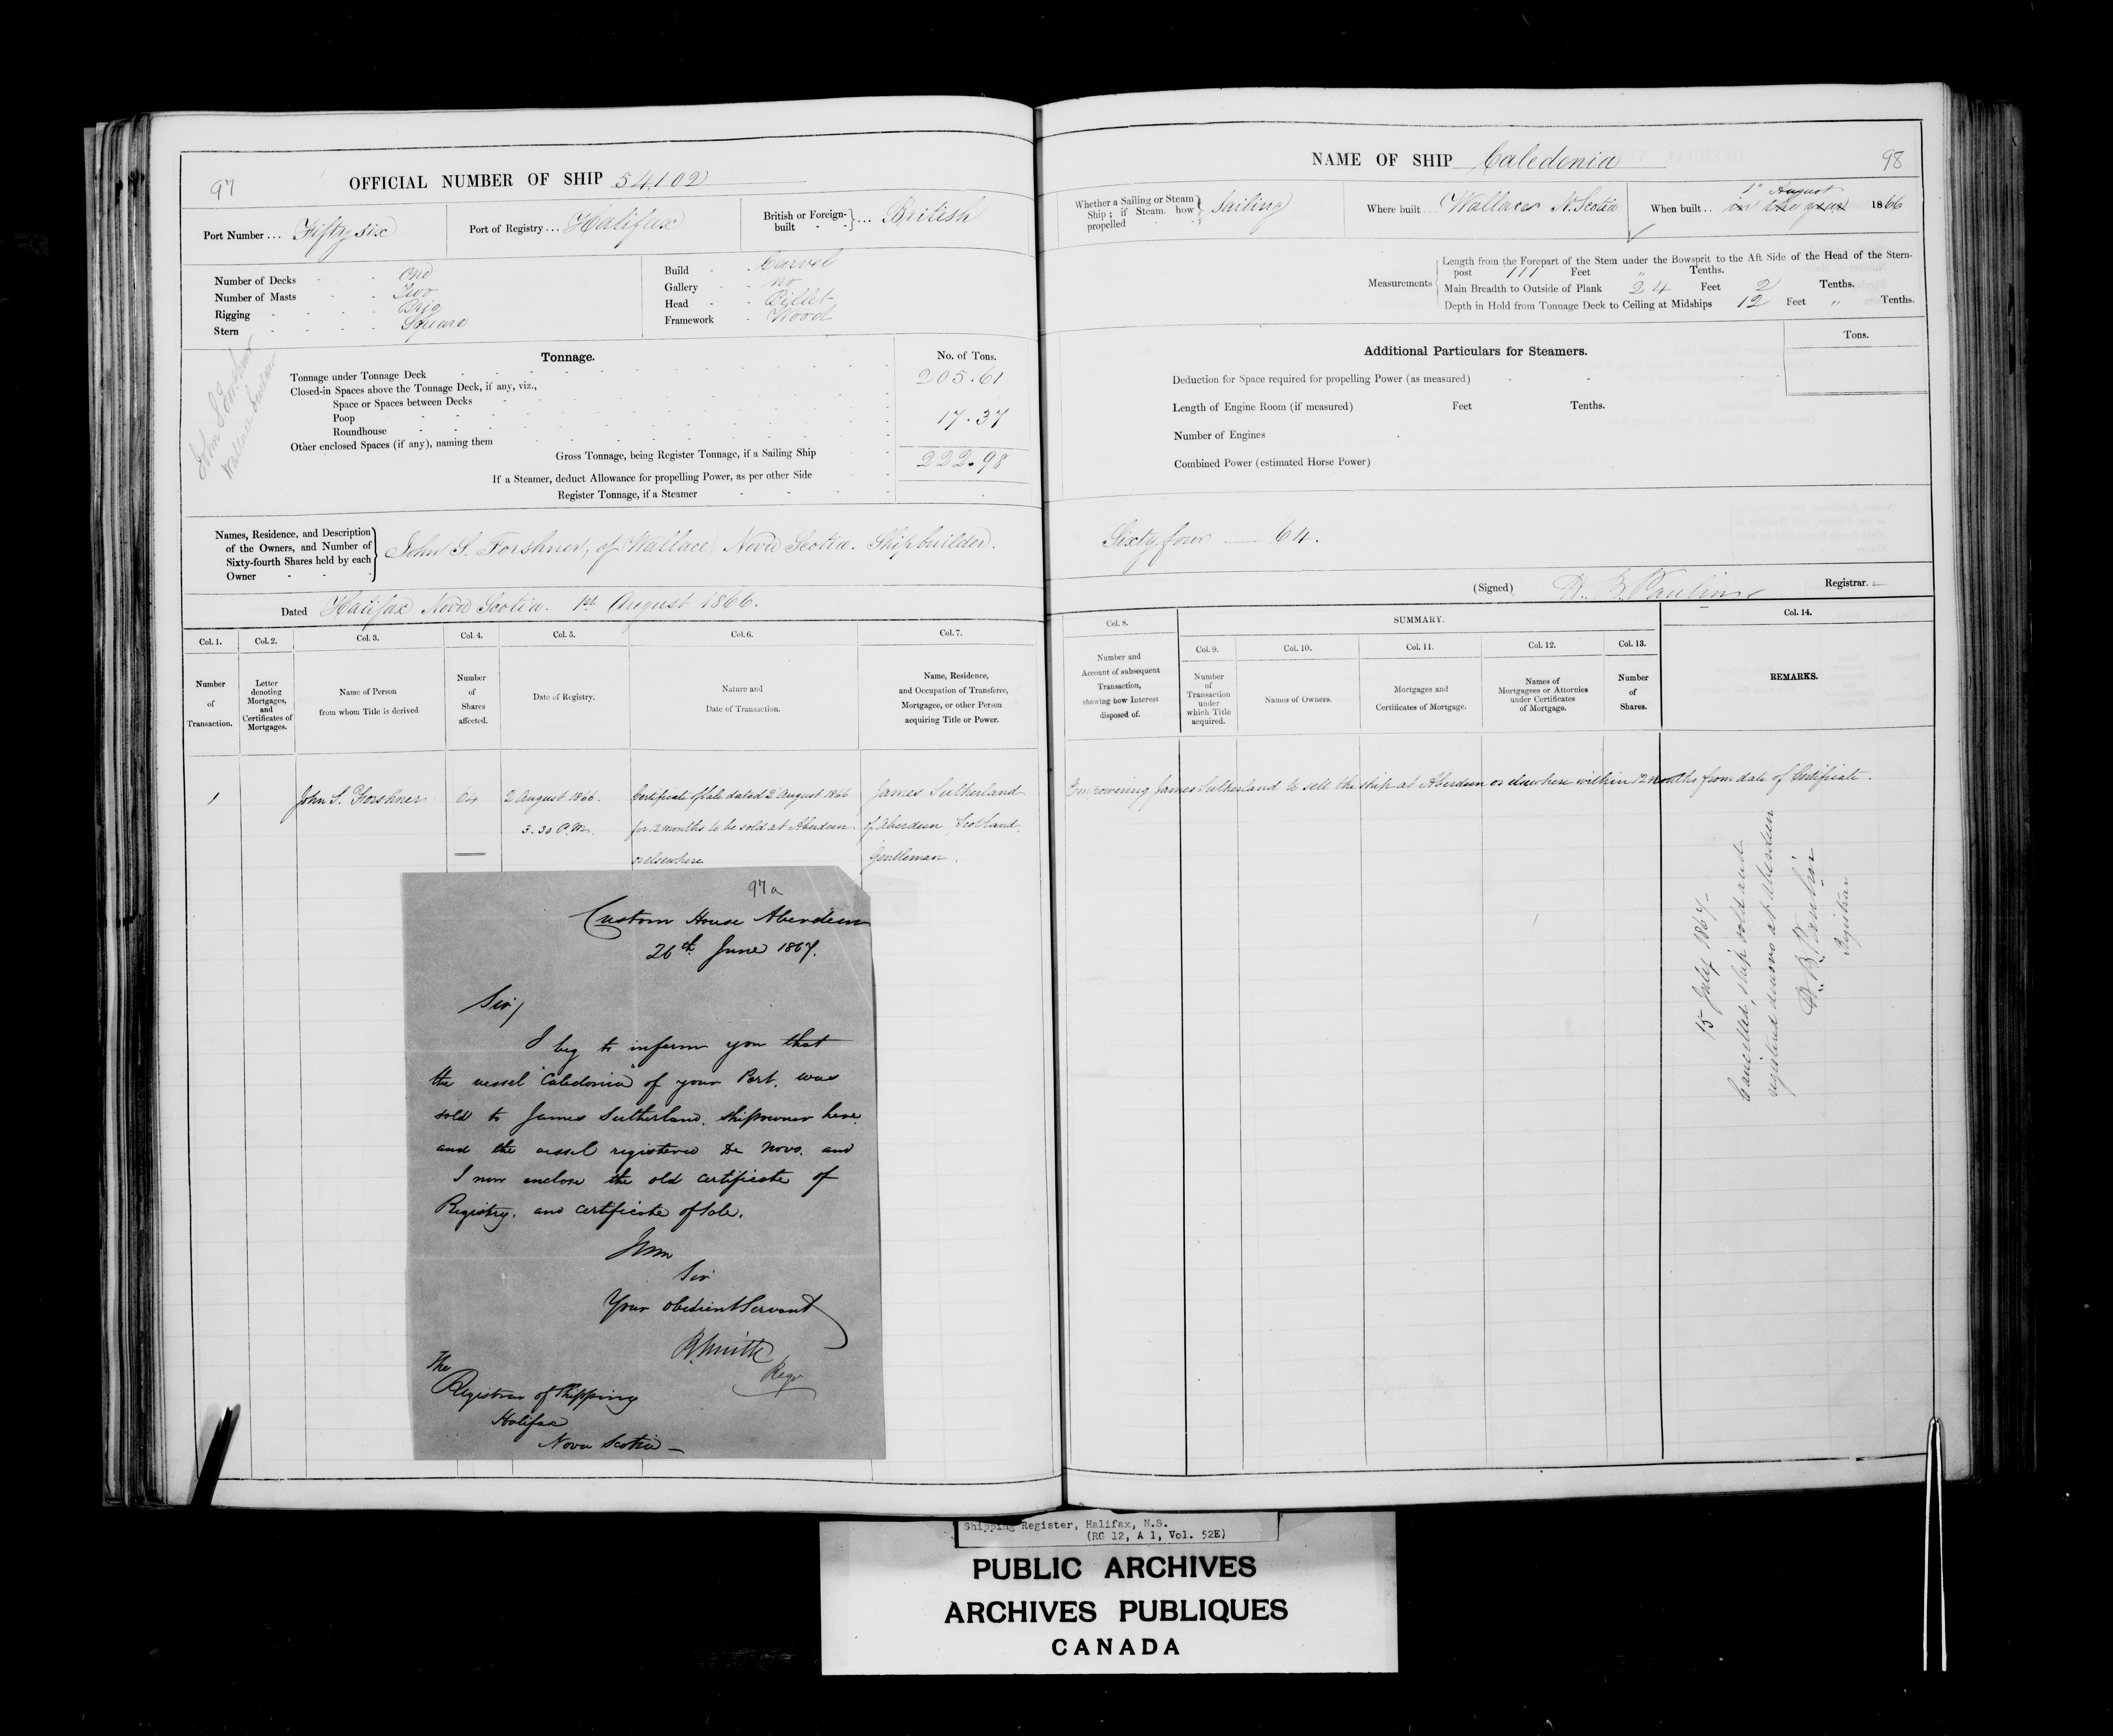 97
OFFICIAL NUMBER OF SHIP 54,102
Port Number ... Fifty six
Port of Registry ... Halifax
British or Foreign-built ... British
Number of Decks - - One
Number of Masts - - Two
Rigging - - - - Brig
Stern - - - - Square
Build - Carvel
Gallery - - no
Head - - Billet
Framework - Wood
John S. Forshner
Wallace Shipbuilder
Tonnage.
No. of Tons.
Tonnage under Tonnage Deck 205.61
Closed-in Spaces above the Tonnage Deck, if any, viz.,
Space or Spaces between Decks
Poop 17.37
Roundhouse
Other enclosed Spaces (if any), naming them
Gross Tonnage, being Register Tonnage, if a Sailing Ship 222.98
If a Steamer, deduct Allowance for propelling Power, as per other Side
Register Tonnage, if a Steamer
Names, Residence, and Description
of the Owners, and Number of
Sixty-fourth Shares held by each
Owner
John S. Forshner, of Wallace, Nova Scotia. Shipbuilder.
Dated Halifax Nova Scotia. 1st August 1866.
Col. 1.
Number
of
Transaction.
Col. 2.
Letter
denoting
Mortgages,
and
Certificates of
Mortgages.
Col. 3.
Name of Person
from whom Title is derived
Col. 4.
Number
of
Shares
affected.
Col. 5.
Date of Registry.
Col. 6.
Nature and
Date of Transaction.
Col. 7.
Name, Residence,
and Occupation of Transferee,
Mortgagee, or other Person
acquiring Title or Power.
1
John S. Forshner
64
2 August 1866.
3.30 P.M.
Certificate of Sale dated 2 August 1866
for 12 months to be sold at Aberdeen
or elsewhere
James Sutherland
of Aberdeen, Scotland,
Gentleman.
97a
Custom House Aberdeen
26th June 1867.
Sir/
I beg to inform you that
the vessel "Caledonia" of your Port, was
sold to James Sutherland, shipowner here,
and the vessel registered De Novo, and
I now enclose the old certificate of
Registry, and certificate of Sale.
I am
Sir
Your obedient Servant
Smith
Regr
The
Registrar of Shipping
Halifax
Nova Scotia —
NAME OF SHIP Caledonia
98
Whether a Sailing or Steam
Ship; if Steam, how
propelled
Sailing
Where built ... Wallace N. Scotia
When built .. in the year 1866
1st August
Measurements
Length from the Forepart of the Stem under the Bowsprit to the Aft Side of the Head of the Stern-
post 111 Feet " Tenths.
Main Breadth to Outside of Plank 24 Feet 2 Tenths.
Depth in Hold from Tonnage Deck to Ceiling at Midships 12 Feet " Tenths.
Tons.
Additional Particulars for Steamers.
Deduction for Space required for propelling Power (as measured)
Length of Engine Room (if measured) Feet Tenths.
Number of Engines
Combined Power (estimated Horse Power)
Sixty four — 64.
(Signed) H. B. Paulin Registrar.
Col. 8.
Number and
Account of subsequent
Transaction,
showing how Interest
disposed of.
SUMMARY.
Col. 9.
Number
of
Transaction
under
which Title
acquired.
Col. 10.
Names of Owners.
Col. 11.
Mortgages and
Certificates of Mortgage.
Col. 12.
Names of
Mortgagees or Attornies
under Certificates
of Mortgage.
Col. 13.
Number
of
Shares.
Col. 14.
REMARKS.
Empowering James Sutherland to sell the ship at Aberdeen or elsewhere within 12 months from date of Certificate.
15 July 1867 -
Cancelled, ship sold and
registered de novo at Aberdeen
H. B. Paulin
Registrar
Shipping Register, Halifax, N.S.
(RG 12, A 1, Vol. 52E)
PUBLIC ARCHIVES
ARCHIVES PUBLIQUES
CANADA